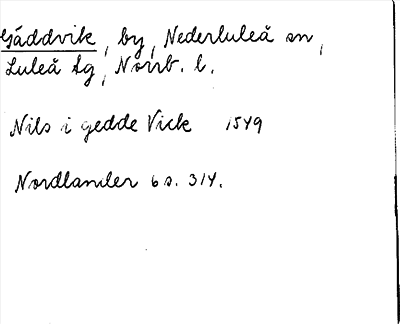 Gäddvik, by, Nederluleå sn,
Luleå tg, Norrb. l.
Nils i gedde Vick 1549
Nordlander 6 s. 314.